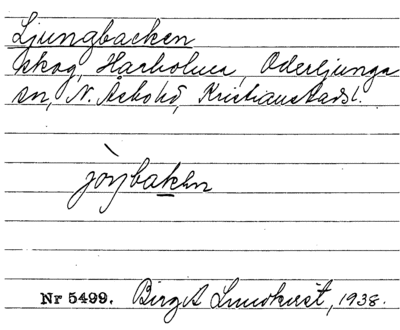 Ljungbacken
skog, Harholma, Oderljunga
sn, N. Åsbohd, Kristianstads l.
jòŋbaken
Nr 5499. Birgit Lundkvist, 1938.